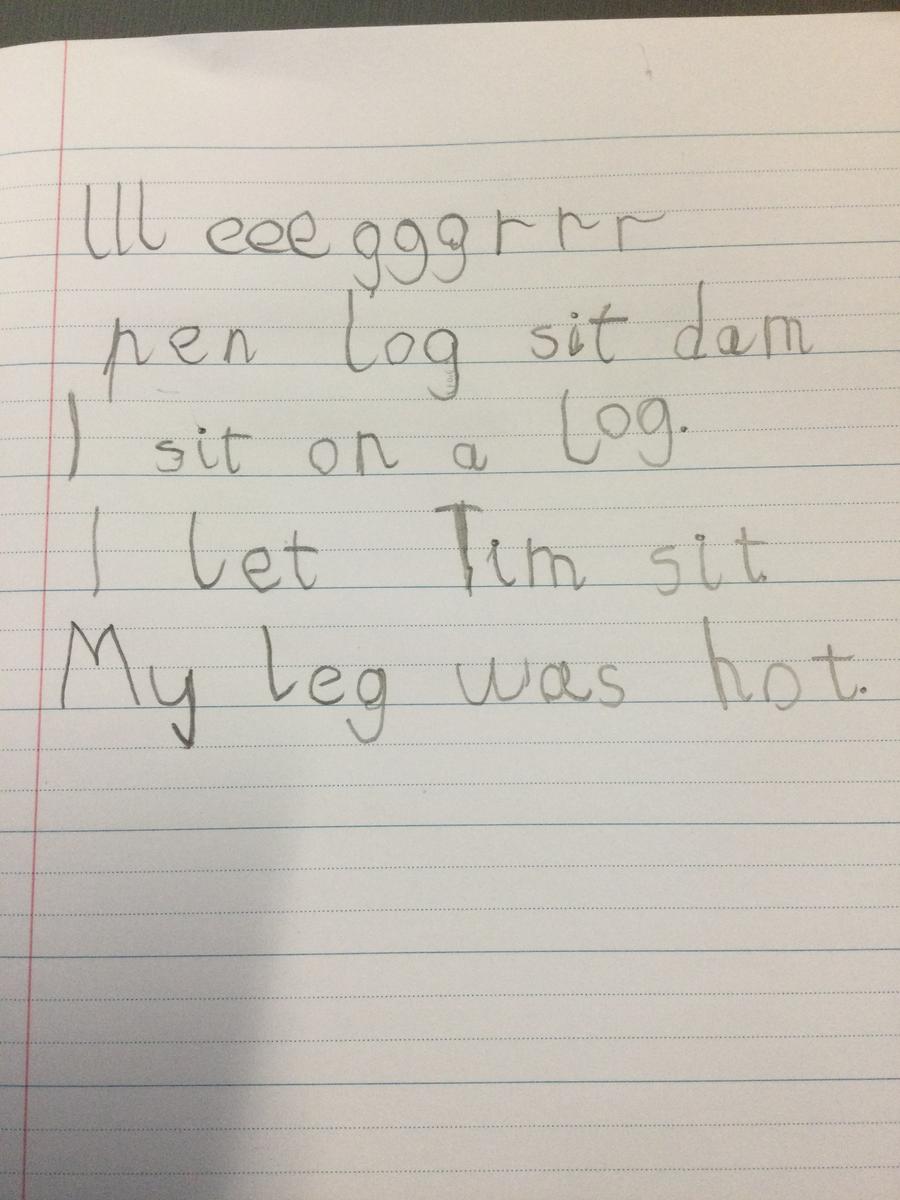 lll eee ggg r r r
pen log sit dam
I sit on a log.
I let Tim sit.
My leg was hot.